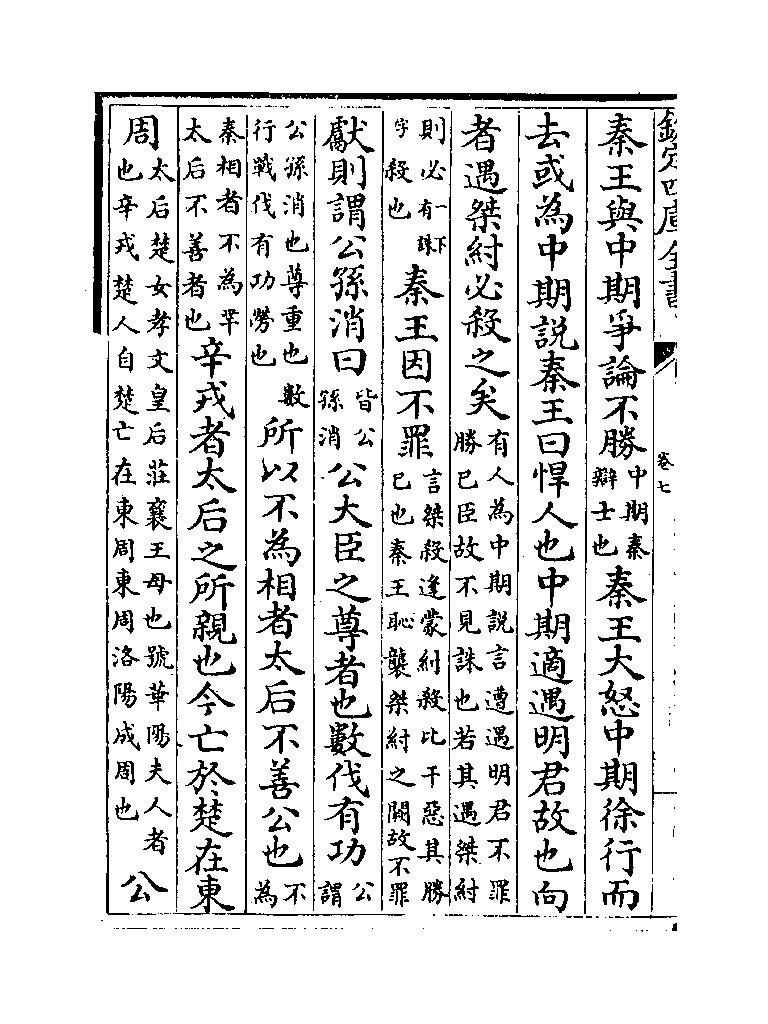 欽定四庫全書
卷七
秦王與中期爭論不勝中期秦辯士也秦王大怒中期徐行而
去或為中期說秦王曰悍人也中期適遇明君故也向
者遇桀紂必殺之矣有人為中期說言遭遇明君不罪勝已臣故不見誅也若其遇桀紂
則必有一下誅字殺也秦王因不罪言桀殺逢蒙紂殺比干惡其勝已也秦王恥襲桀紂之闕故不罪
獻則謂公孫消曰皆公孫消公大臣之尊者也數伐有功公謂
公孫消也尊重也數行戰伐有功勞也所以不為相者太后不善公也不為
秦相者不為羋太后不善者也辛戎者太后之所親也今亡於楚在東
周太后楚女孝文皇后莊襄王母也號華陽夫人者也辛戎楚人自楚亡在東周東周洛陽成周也公